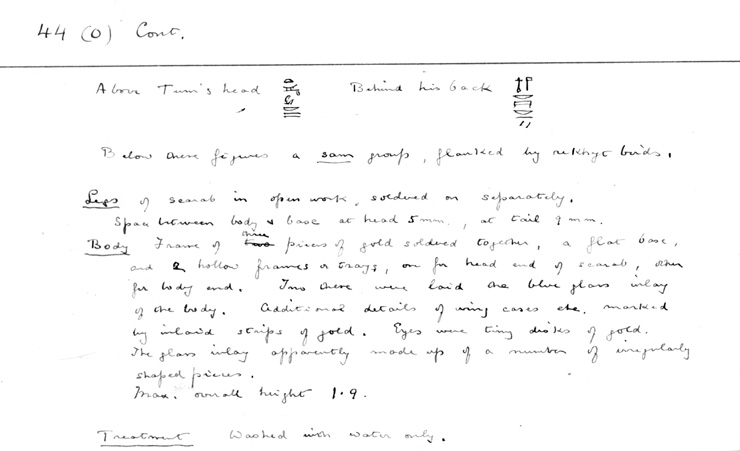 44 (O) Cont.
Above Tum's head Behind his back
Below these figures a sam group, flanked by rekhyt birds.
Legs of scarab in open work, soldered on separately.
Space between body & base at head 5 mm., at tail 9 mm.
Body Frame of three pieces of gold soldered together, a flat base,
and 2 hollow frames or trays, one for head end of scarab, other
for body end. Into these were laid the blue glass inlay
of the body. Additional details of wing cases etc. marked
by inlaid strips of gold. Eyes were tiny disks of gold.
The glass inlay apparently made up of a number of irregularly
shaped pieces.
Max. overall height 1.9.
Treatment Washed with water only.